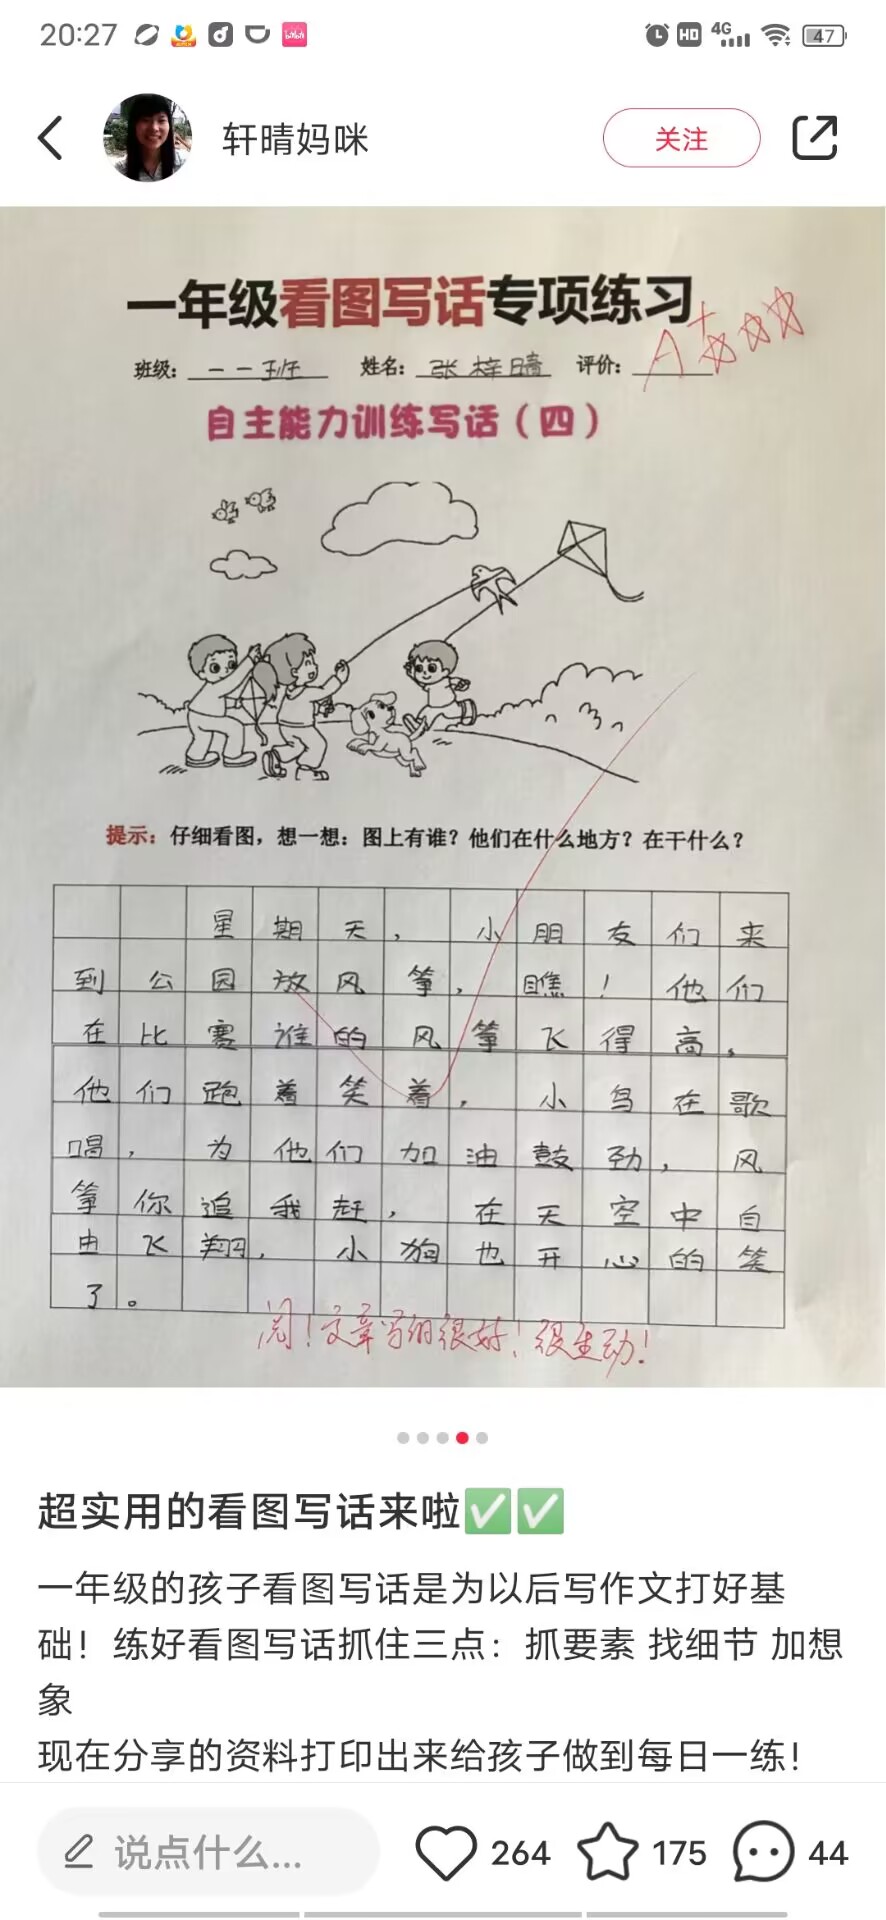 20:27
HD 4G 47
轩晴妈咪
关注
一年级看图写话专项练习
班级：一一班 姓名：张梓晴 评价：A+
自主能力训练写话（四）
提示：仔细看图，想一想：图上有谁？他们在什么地方？在干什么？
星期天，小朋友们来
到公园放风筝，瞧！他们
在比赛谁的风筝飞得高，
他们跑着笑着，小鸟在歌
唱，为他们加油鼓劲，风
筝你追我赶，在天空中自
由飞翔，小狗也开心的笑
了。
阅！文章写的很好！很生动！
超实用的看图写话来啦✅✅
一年级的孩子看图写话是为以后写作文打好基
础！练好看图写话抓住三点：抓要素 找细节 加想
象
现在分享的资料打印出来给孩子做到每日一练！
说点什么...
264
175
44